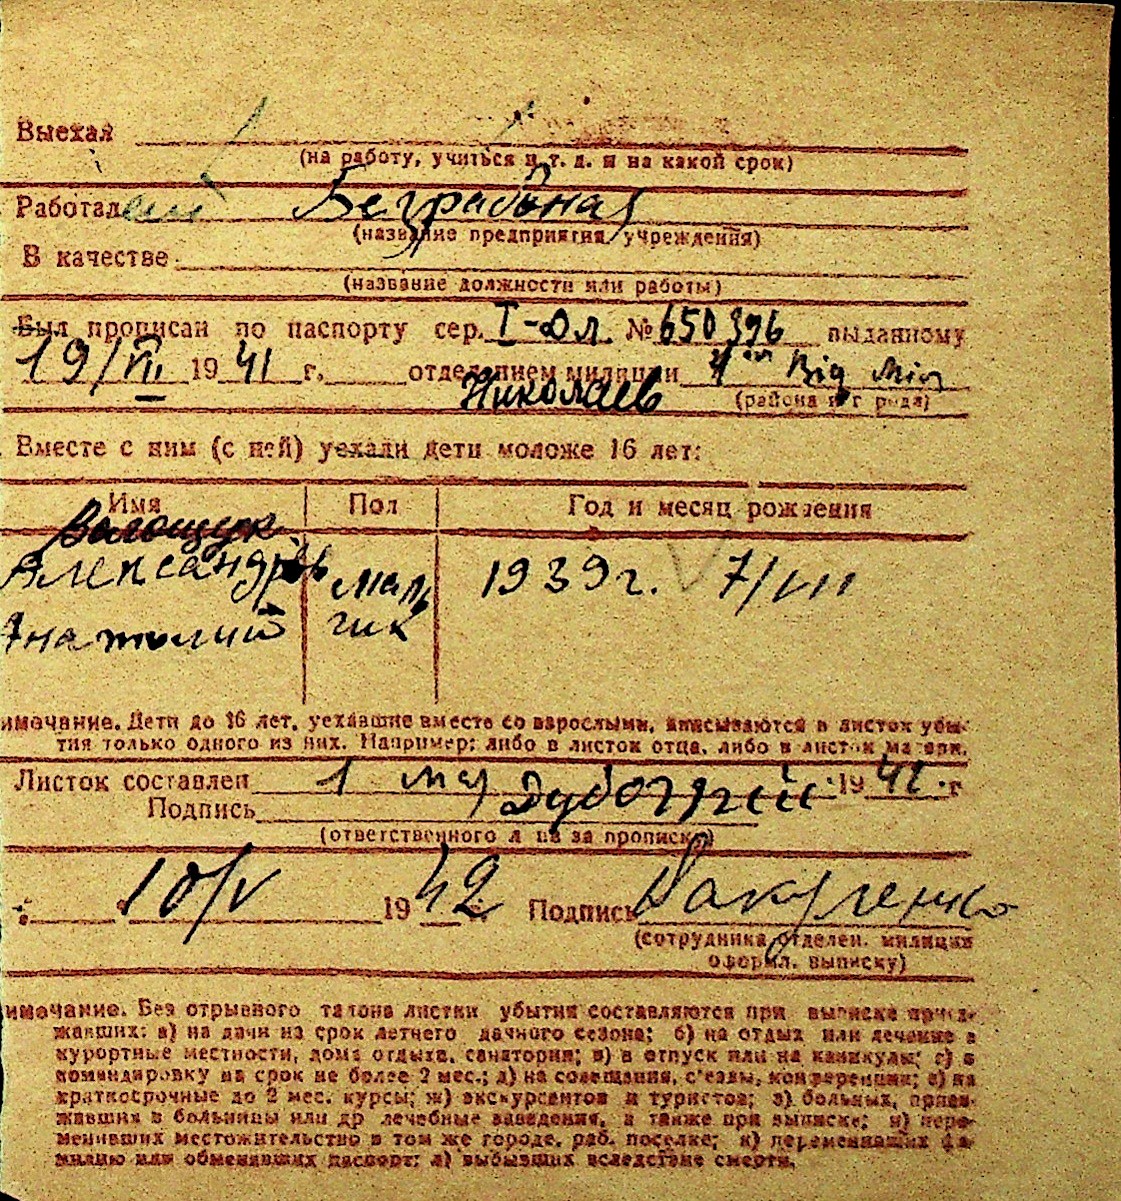 Выехал
(на работу, учиться и т. д. и на какой срок)
Работал
(название предприятия, учреждения)
В качестве
(название должности или работы)
Был прописан по паспорту сер. I-ол. № 650396 выданному
19/VII 1941 г. отделением милиции
Николаев (района и города)
Вместе с ним (с ней) уехали дети моложе 16 лет:
Имя Пол Год и месяц рождения
Волощук
Александров маль 1939 г. 7/VIII
Анатолий чик
имечание. Дети до 16 лет, уехавшие вместе со взрослыми, вписываются в листок убы-
тия только одного из них. Например: либо в листок отца, либо в листок матери.
Листок составлен 1 мая 1942 г
Подпись
(ответственного лица за прописку)
10/V 1942 Подпись
(сотрудника отделен. милиции
оформл. выписку)
имечание. Без отрывного талона листки убытия составляются при выписке приез-
жавших: а) на дачи на срок летнего дачного сезона; б) на отдых или лечение в
курортные местности, дома отдыха, санатории; в) в отпуск или на каникулы; г) в
командировку на срок не более 2 мес.; д) на совещания, с'езды, конференции; е) на
краткосрочные до 2 мес. курсы; ж) экскурсантов и туристов; з) больных, приез-
жавших в больницы или др лечебные заведения, а также при выписке; и) пере-
менивших местожительство в том же городе, раб. поселке; к) переменивших фа-
милию или обменявших паспорт; л) выбывших вследствие смерти.